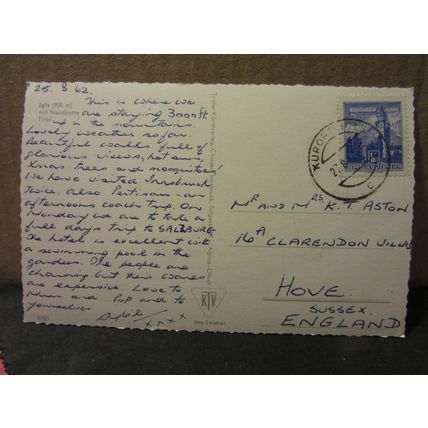 25.8.62.
Igls (900 m)
mit Nordkette
Tirol
This is where we
are staying 3000ft
up in the mountains.
Lovely weather so far.
Beautiful walks full of
glorious views, hot sun,
Xmas trees and mosquitoes!
We have visited Innsbruck
twice. also Partisan on
afternoons coach trip. On
Monday we are to take a
full days trip to SALZBURG.
The hotel is excellent with
a swimming pool in the
garden. The people are
charming but their wares
are expensive. Love to
Mum and Pop and to
yourselves
xxxx
KURORT IGLS
MR AND MRS K.T. ASTON
16A CLARENDON VILLAS
HOVE.
SUSSEX.
ENGLAND
KTV